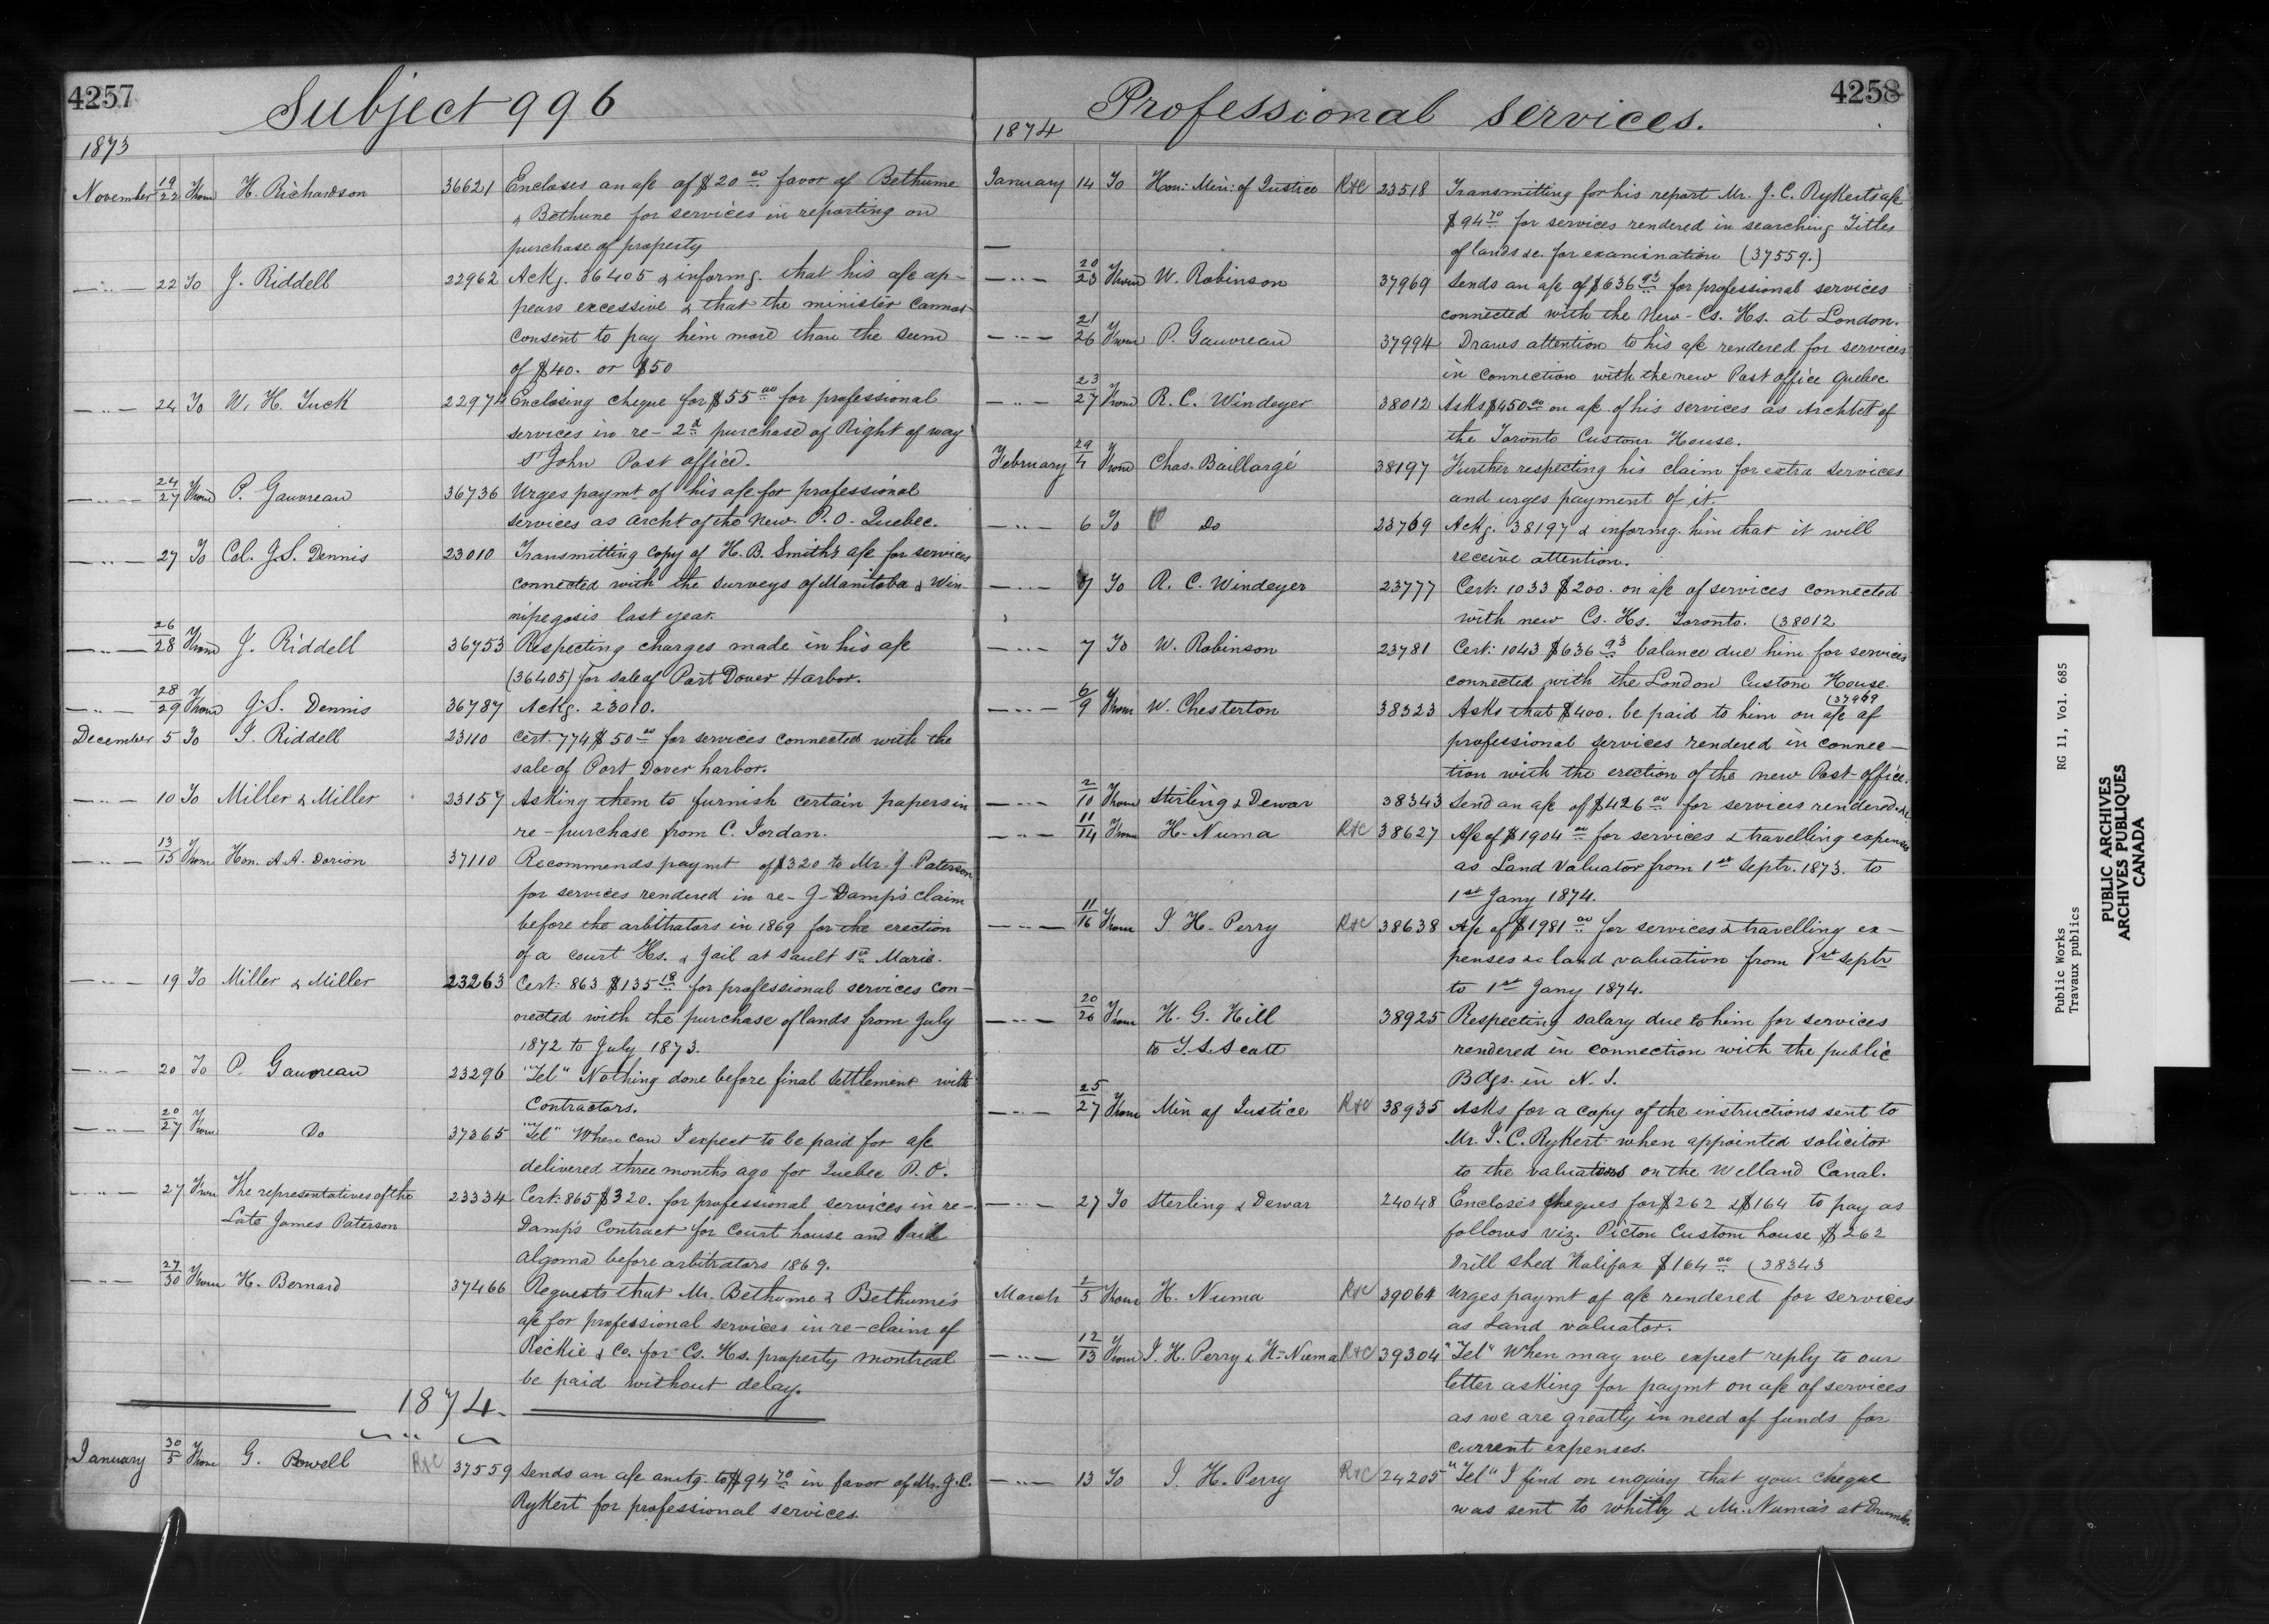 4257
Subject 996
1873
November 19/22 From H. Richardson 36621 Encloses an a/c of $20.00 favor of Bethune
& Bethune for services in reporting on
purchase of property
—"— 22 To J. Riddell 22962 Ackg. 36405 & informg. that his a/c ap-
pears excessive & that the minister cannot
consent to pay him more than the sum
of $40. or $50
—"— 24 To W. H. Tuck 22974 Enclosing cheque for $55.00 for professional
services in re- 2d purchase of Right of way
St John Post office.
—"— 24/27 From P. Gauvreau 36736 Urges paymt of his a/c for professional
services as archt of the new P.O. Quebec.
—"— 27 To Col. J.S. Dennis 23010 Transmitting copy of H.B. Smith's a/c for services
connected with the surveys of Manitoba & Win-
nipegosis last year.
—"— 26/28 From J. Riddell 36753 Respecting charges made in his a/c
(36405) for sale of Port Dover Harbor.
—"— 28/29 From J.S. Dennis 36787 Ackg. 23010.
December 5 To J. Riddell 23110 Cert. 774 $50.00 for services connected with the
sale of Port Dover harbor.
—"— 10 To Miller & Miller 23157 Asking them to furnish certain papers in
re-purchase from C. Jordan.
—"— 13/15 From Hon. A.A. Dorion 37110 Recommends paymt of $320 to Mr. J. Paterson
for services rendered in re- J- Damp's claim
before the arbitrators in 1869 for the erection
of a court Hs. & Jail at Sault Ste Marie.
—"— 19 To Miller & Miller 23263 Cert: 863 $135.18 for professional services con-
nected with the purchase of lands from July
1872 to July 1873.
—"— 20 To P. Gauvreau 23296 "Tel" Nothing done before final settlement with
Contractors.
—"— 20/27 From Do 37365 "Tel" When can I expect to be paid for a/c
delivered three months ago for Quebec P.O.
—"— 27 From The representatives of the 23334 Cert: 865 $320. for professional services in re-
Late James Paterson Damp's Contract for Court house and Jail
Algoma before arbitrators 1869.
—"— 27/30 From H. Bernard 37466 Requests that Mr. Bethune & Bethune's
a/c for professional services in re-claim of
Rickie & Co. for Cs. Hs. property Montreal
be paid without delay.
1874.
January 30/5 From G. Powell R&C 37559 Sends an a/c amtg. to $94.70 in favor of Mr. J.C.
Rykert for professional services.
4258
Professional services.
1874
January 14 To Hon: Min: of Justice R&C 23518 Transmitting for his report Mr. J.C. Rykert's a/c
$94.70 for services rendered in searching Titles
of lands &c. for examination (37559.)
—"— 20/23 From W. Robinson 37969 Sends an a/c of $636.93 for professional services
connected with the New-Cs. Hs. at London.
—"— 21/26 From P. Gauvreau 37994 Draws attention to his a/c rendered for services
in connection with the new Post office Quebec
—"— 23/27 From R. C. Windeyer 38012 Asks $450.00 on a/c of his services as Archtet of
the Toronto Custom House.
February 29/4 From Chas. Baillargé 38197 Further respecting his claim for extra services
and urges payment of it.
—"— 6 To Do 23769 Ackg. 38197 & informg. him that it will
receive attention.
—"— 7 To R. C. Windeyer 23777 Cert: 1033 $200. on a/c of services connected
with new Cs. Hs. Toronto. (38012
—"— 7 To W. Robinson 23781 Cert: 1043 $636.93 balance due him for services
connected with the London Custom House.
(37969
—"— 6/9 From W. Chesterton 38323 Asks that $400. be paid to him on a/c of
professional services rendered in connec-
tion with the erection of the new Post-office.
—"— 2/10 From Stirling & Dewar 38343 Send an a/c of $426.00 for services rendered &c
—"— 11/14 From H. Numa R&C 38627 A/c of $1904.00 for services & travelling expenses
as Land Valuator from 1st Septr. 1873. to
1st Jany 1874.
—"— 11/16 From J. H. Perry R&C 38638 A/c of $1981.00 for services & travelling ex-
penses &c land valuation from 1st Septr
to 1st Jany 1874.
—"— 20/26 From H. G. Hill 38925 Respecting salary due to him for services
to T.S. Scott rendered in connection with the public
Bdgs. in N. S.
—"— 25/27 From Min of Justice R&C 38935 Asks for a copy of the instructions sent to
Mr. J.C. Rykert when appointed solicitor
to the valuators on the Welland Canal.
—"— 27 To Sterling & Dewar 24048 Encloses cheques for $262 & $164 to pay as
follows viz. Picton Custom house $262
Drill Shed Halifax $164.00 (38343
March 2/5 From H. Numa R&C 39064 Urges paymt of a/c rendered for services
as Land valuator.
—"— 12/13 From J. H. Perry & H. Numa R&C 39304 "Tel" When may we expect reply to our
letter asking for paymt on a/c of services
as we are greatly in need of funds for
current expenses.
—"— 13 To J. H. Perry R&C 24205 "Tel" I find on enquiry that your cheque
was sent to Whitby & Mr. Numa's at
Public Works RG 11, Vol. 685
Travaux publics
PUBLIC ARCHIVES
ARCHIVES PUBLIQUES
CANADA